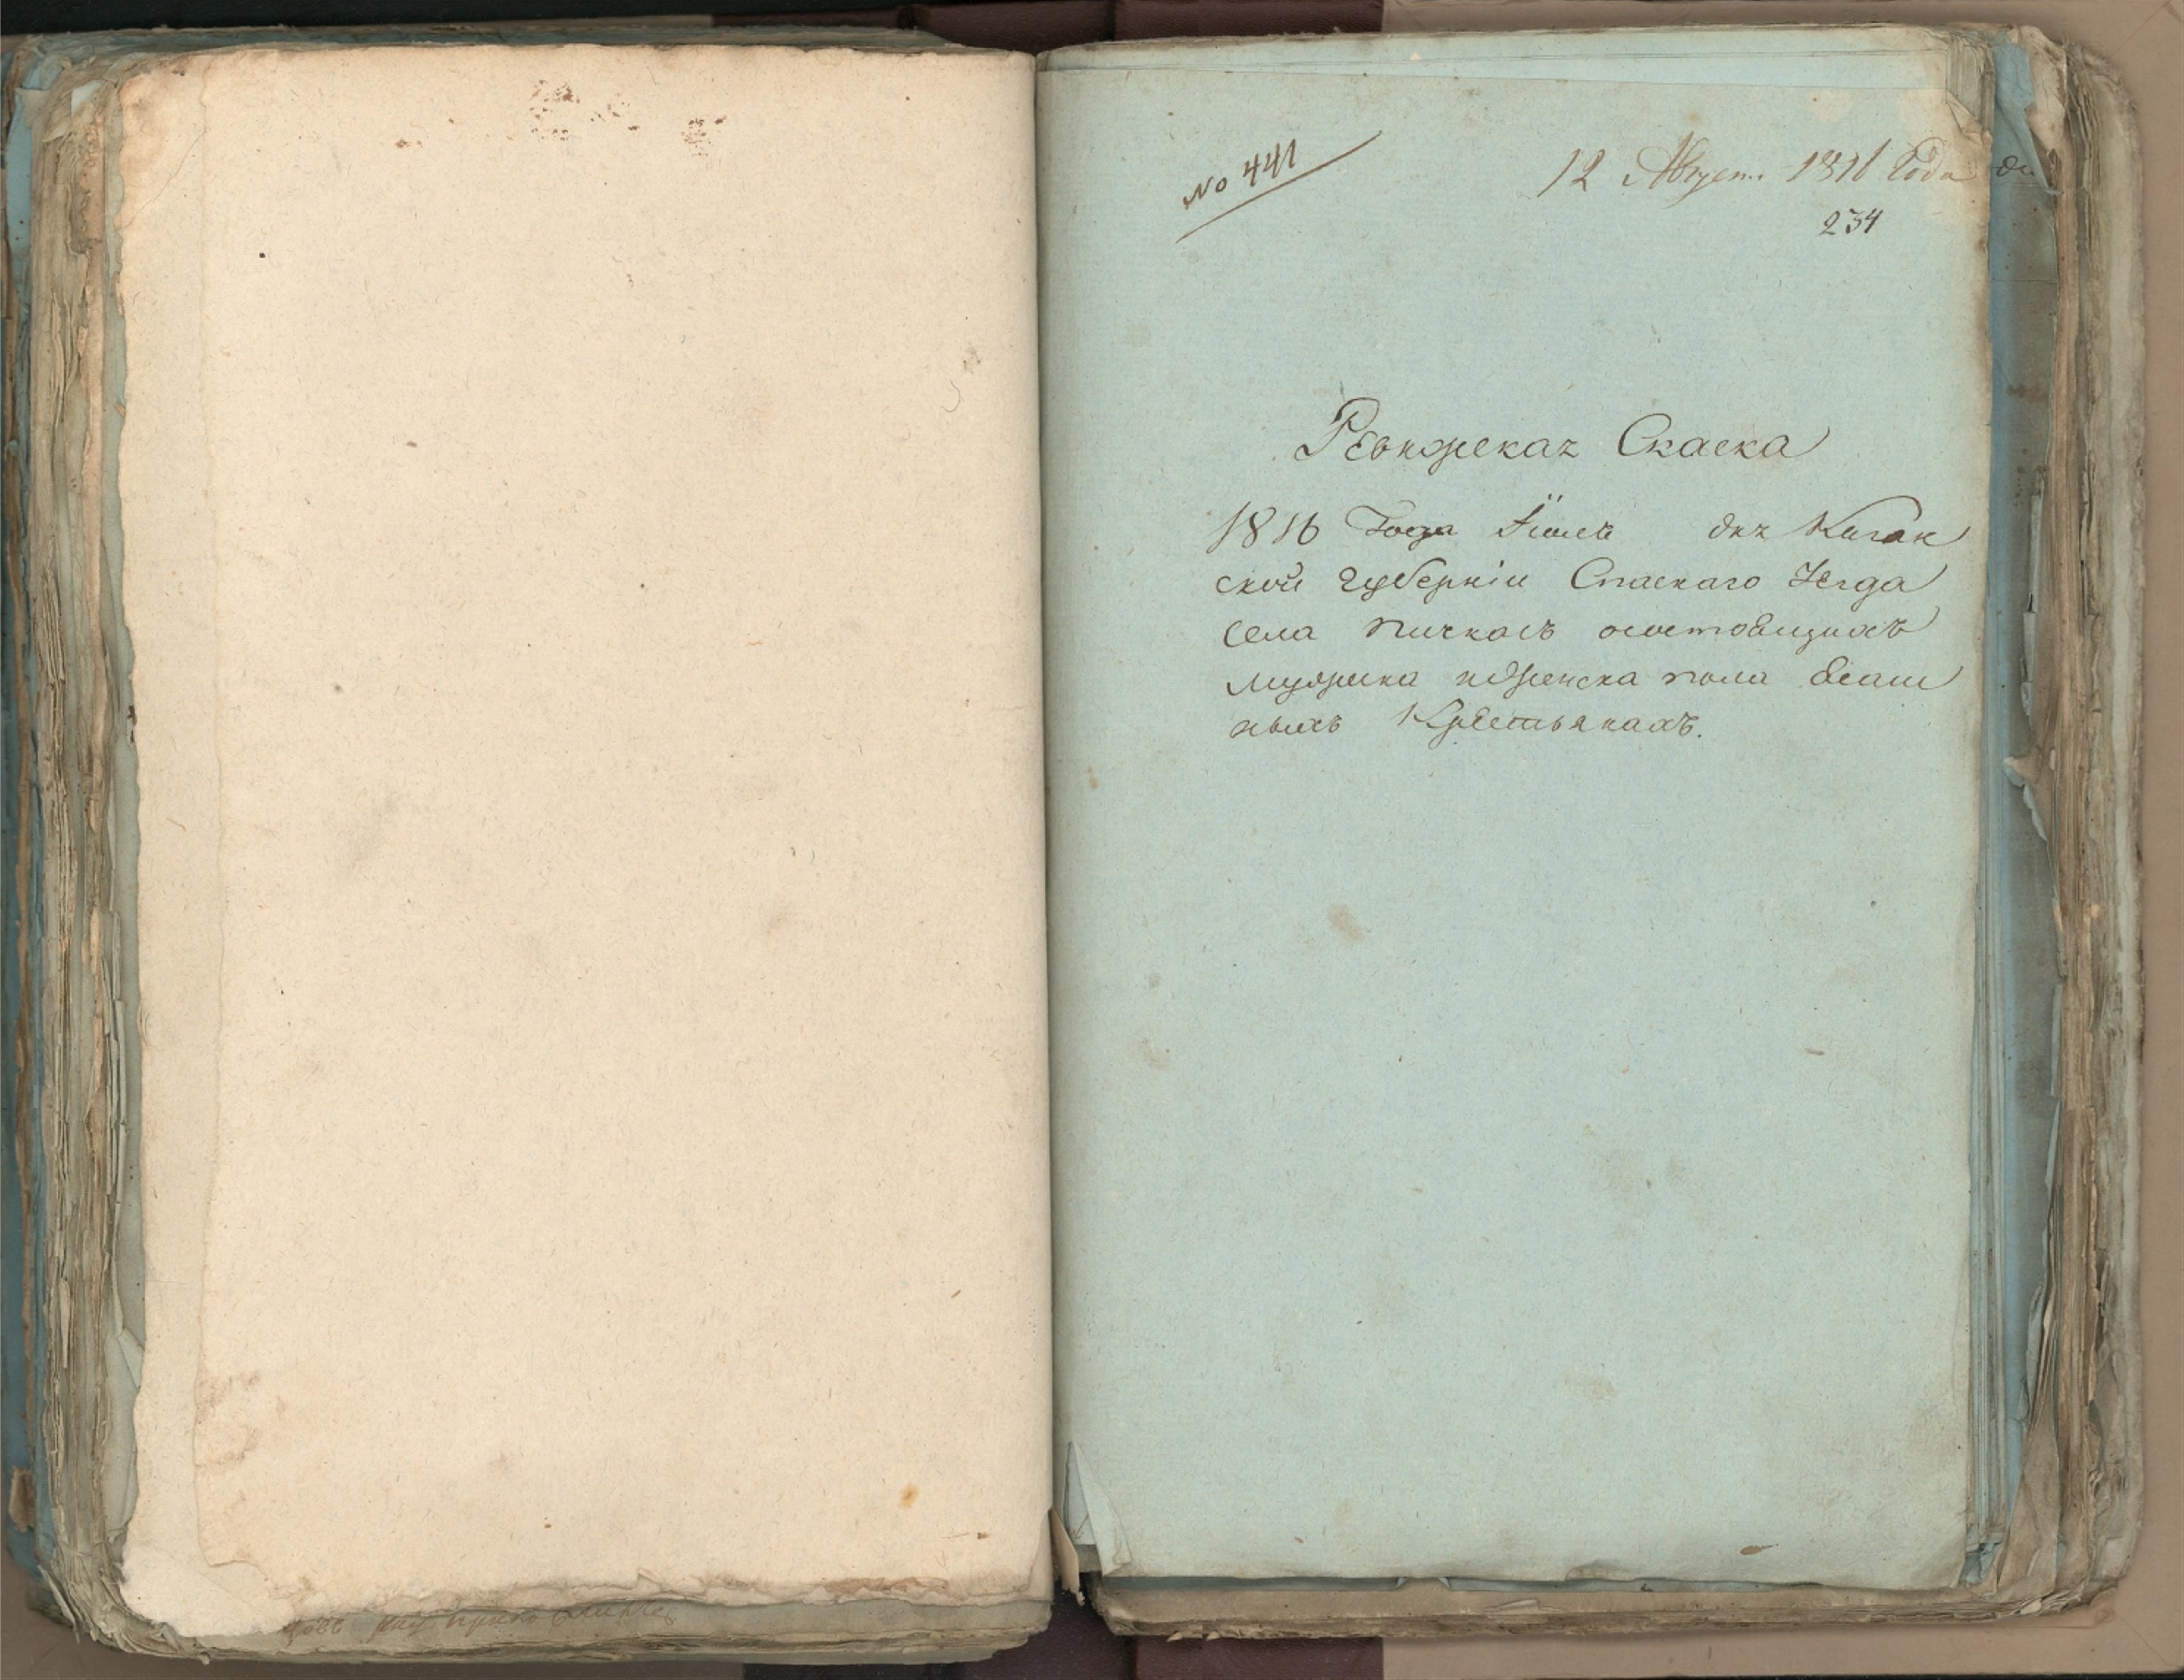 No 441
12 Август. 1816 Года
234
Ревижская Скаска
1816 Года Iюля дня Казан
ской губернiи Спаскаго Уезда
села пичкасъ осостовщихъ
мужеска и женска пола ясаш
ныхъ Крестьянахъ.